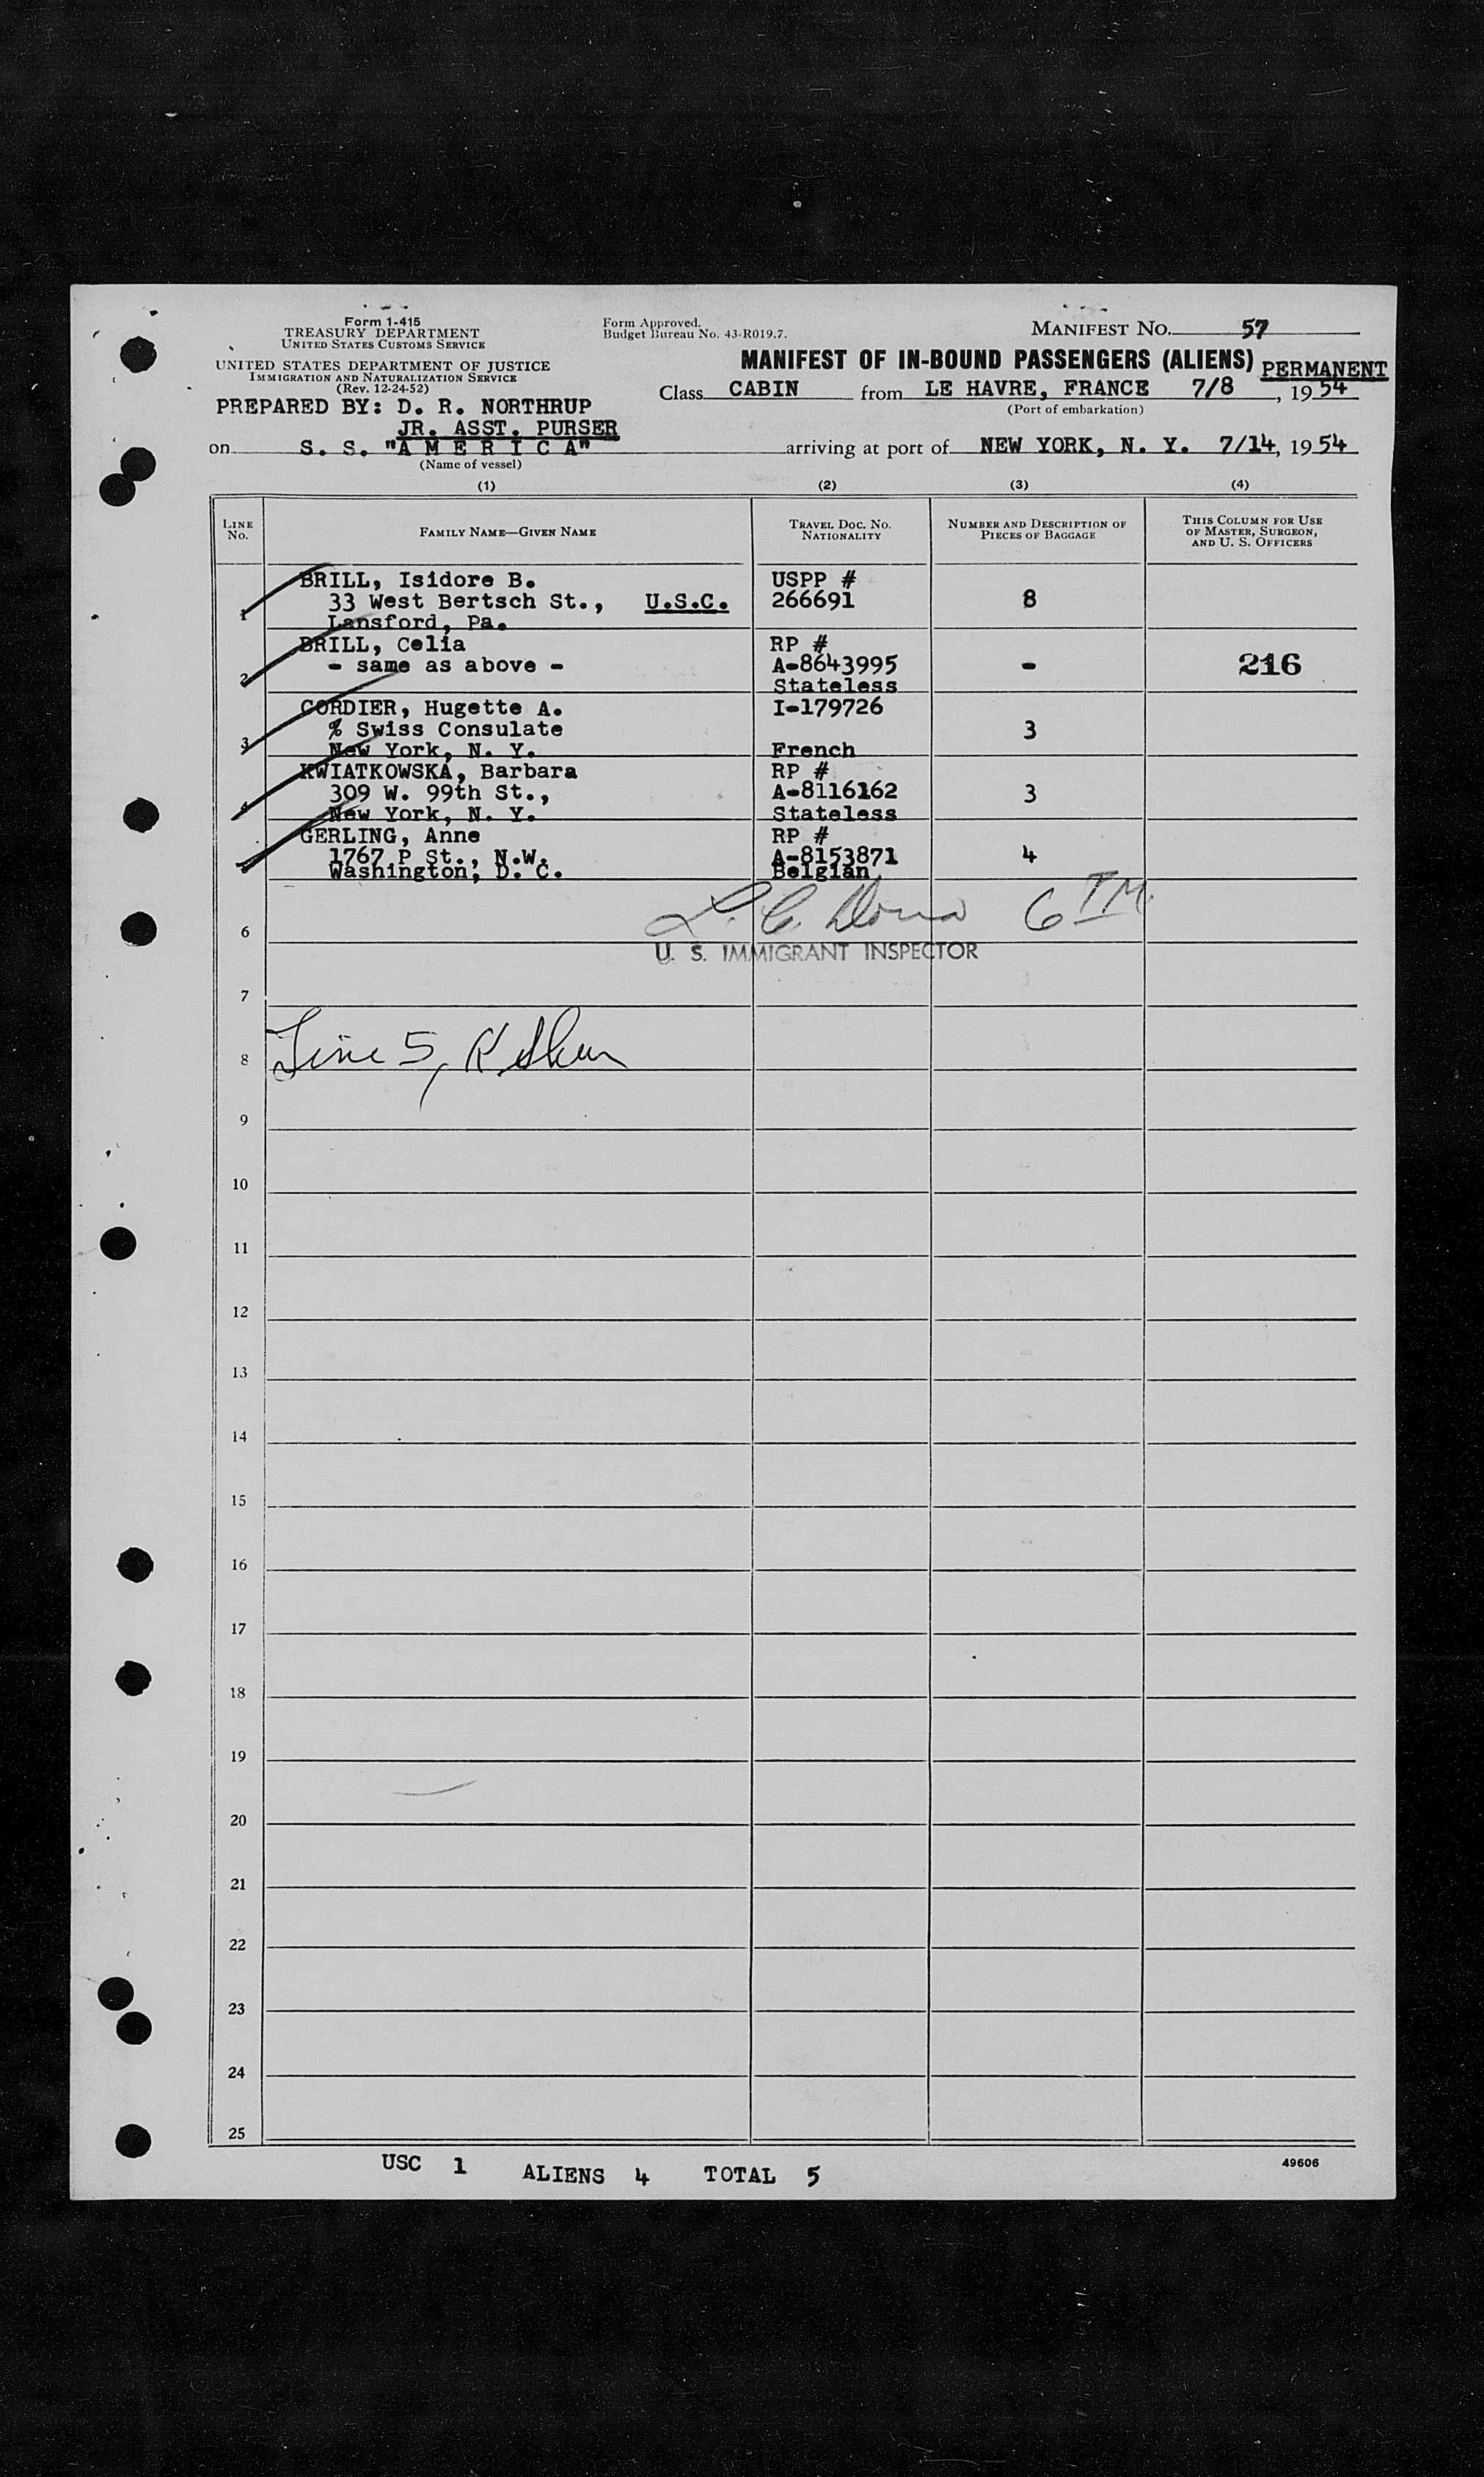 Form 1-415
TREASURY DEPARTMENT
UNITED STATES CUSTOMS SERVICE
UNITED STATES DEPARTMENT OF JUSTICE
IMMIGRATION AND NATURALIZATION SERVICE
(Rev. 12-24-52)
Form Approved.
Budget Bureau No. 43-R019.7.
MANIFEST No. 57
MANIFEST OF IN-BOUND PASSENGERS (ALIENS) PERMANENT
Class CABIN from LE HAVRE, FRANCE 7/8, 1954
(Port of embarkation)
PREPARED BY: D. R. NORTHRUP
JR. ASST. PURSER
on S. S. "A M E R I C A" arriving at port of NEW YORK, N. Y. 7/14, 1954
(Name of vessel)
(1) (2) (3) (4)
LINE No. FAMILY NAME—GIVEN NAME TRAVEL DOC. NO. NATIONALITY NUMBER AND DESCRIPTION OF PIECES OF BAGGAGE THIS COLUMN FOR USE OF MASTER, SURGEON, AND U. S. OFFICERS
BRILL, Isidore B. USPP #
1 33 West Bertsch St., U.S.C. 266691 8
Lansford, Pa.
BRILL, Celia RP #
2 - same as above - A-8643995 - 216
Stateless
CORDIER, Hugette A. I-179726
% Swiss Consulate 3
3 New York, N. Y. French
KWIATKOWSKA, Barbara RP #
4 309 W. 99th St., A-8116162 3
New York, N. Y. Stateless
GERLING, Anne RP #
1767 P St., N.W. A-8153871 4
Washington, D. C. Belgian
6 L. C. 6 IM
U. S. IMMIGRANT INSPECTOR
7
8 Line 5,
9
10
11
12
13
14
15
16
17
18
19
20
21
22
23
24
25
USC 1 ALIENS 4 TOTAL 5
49606